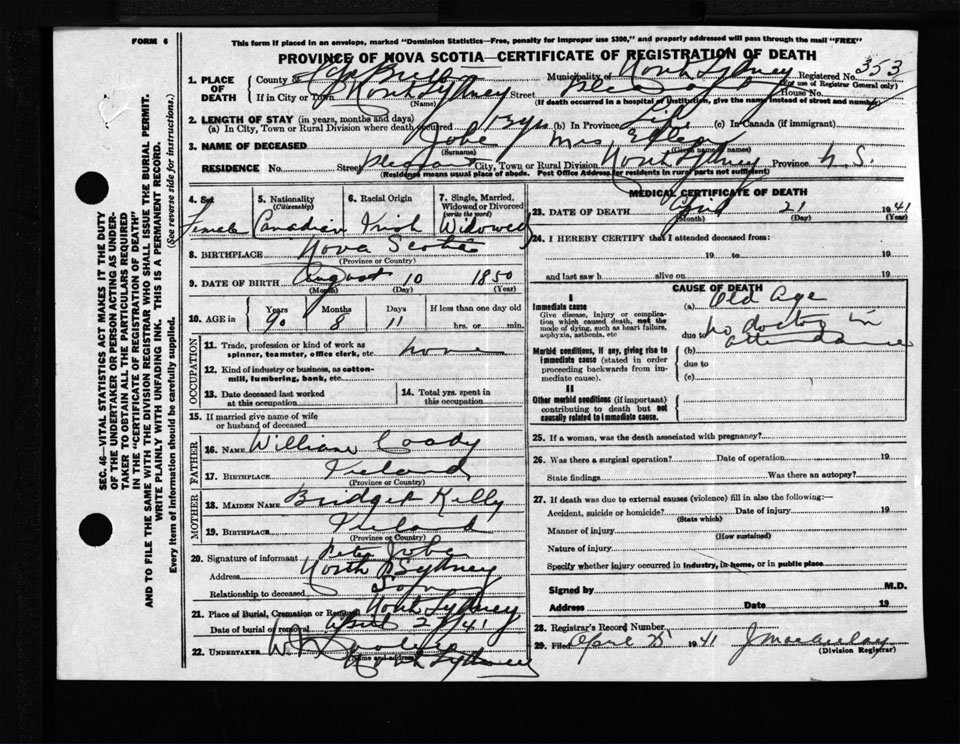 FORM 6
This form if placed in an envelope, marked "Dominion Statistics—Free, penalty for improper use $300," and properly addressed will pass through the mail "FREE"
PROVINCE OF NOVA SCOTIA—CERTIFICATE OF REGISTRATION OF DEATH
1. PLACE OF DEATH County of Cape Breton Municipality of North Sydney Registered No. 353
(For use of Registrar General only)
If in City or Town North Sydney Street House No.
(Name) (If death occurred in a hospital or institution, give the name instead of street and number)
2. LENGTH OF STAY (in years, months and days)
(a) In City, Town or Rural Division where death occurred (b) In Province Life (c) In Canada (if immigrant)
3. NAME OF DECEASED Mrs
(Surname) (Given name or names)
RESIDENCE No. Street City, Town or Rural Division North Sydney Province N.S.
(Residence means usual place of abode. Post Office Address for residents in rural parts not sufficient)
4. Sex 5. Nationality (Citizenship) 6. Racial Origin 7. Single, Married, Widowed or Divorced (write the word)
Female Canadian Irish Widowed
8. BIRTHPLACE Nova Scotia
(Province or Country)
9. DATE OF BIRTH August 10 1850
(Month) (Day) (Year)
10. AGE in Years Months Days If less than one day
90 8 11 hrs. or min.
OCCUPATION
11. Trade, profession or kind of work as spinner, teamster, office clerk, etc. none
12. Kind of industry or business, as cotton-mill, lumbering, bank, etc.
13. Date deceased last worked at this occupation
14. Total yrs. spent in this occupation
15. If married give name of wife or husband of deceased
FATHER
16. NAME William Coady
17. BIRTHPLACE Ireland
(Province or Country)
MOTHER
18. MAIDEN NAME Bridget Kelly
19. BIRTHPLACE Ireland
(Province or Country)
20. Signature of informant Peter
Address North Sydney
Relationship to deceased Son
21. Place of Burial, Cremation or Removal North Sydney
Date of burial or removal April 41
22. UNDERTAKER
(Name and address)
MEDICAL CERTIFICATE OF DEATH
23. DATE OF DEATH April 21 1941
(Month) (Day) (Year)
24. I HEREBY CERTIFY that I attended deceased from:
19 to 19
and last saw h alive on 19
CAUSE OF DEATH
I
Immediate cause (a) Old Age
Give disease, injury or complication which caused death, not the mode of dying, such as heart failure, asphyxia, asthenia, etc
due to no doctor in attendance
Morbid conditions, if any, giving rise to immediate cause (stated in order proceeding backwards from immediate cause).
(b)
due to
(c)
II
Other morbid conditions (if important) contributing to death but not causally related to immediate cause.
25. If a woman, was the death associated with pregnancy?
26. Was there a surgical operation? Date of operation 19
State findings Was there an autopsy?
27. If death was due to external causes (violence) fill in also the following:—
Accident, suicide or homicide? Date of injury 19
(State which)
Manner of injury
(How sustained)
Nature of injury
Specify whether injury occurred in industry, in home, or in public place
Signed by M.D.
Address Date 19
28. Registrar's Record Number
29. Filed April 25 1941
(Division Registrar)
SEC. 46—VITAL STATISTICS ACT MAKES IT THE DUTY
OF THE UNDERTAKER OR PERSON ACTING AS UNDER-
TAKER TO OBTAIN ALL THE PARTICULARS REQUIRED
IN THE "CERTIFICATE OF REGISTRATION OF DEATH"
AND TO FILE THE SAME WITH THE DIVISION REGISTRAR WHO SHALL ISSUE THE BURIAL PERMIT.
WRITE PLAINLY WITH UNFADING INK. THIS IS A PERMANENT RECORD.
Every item of information should be carefully supplied. (See reverse side for instructions.)